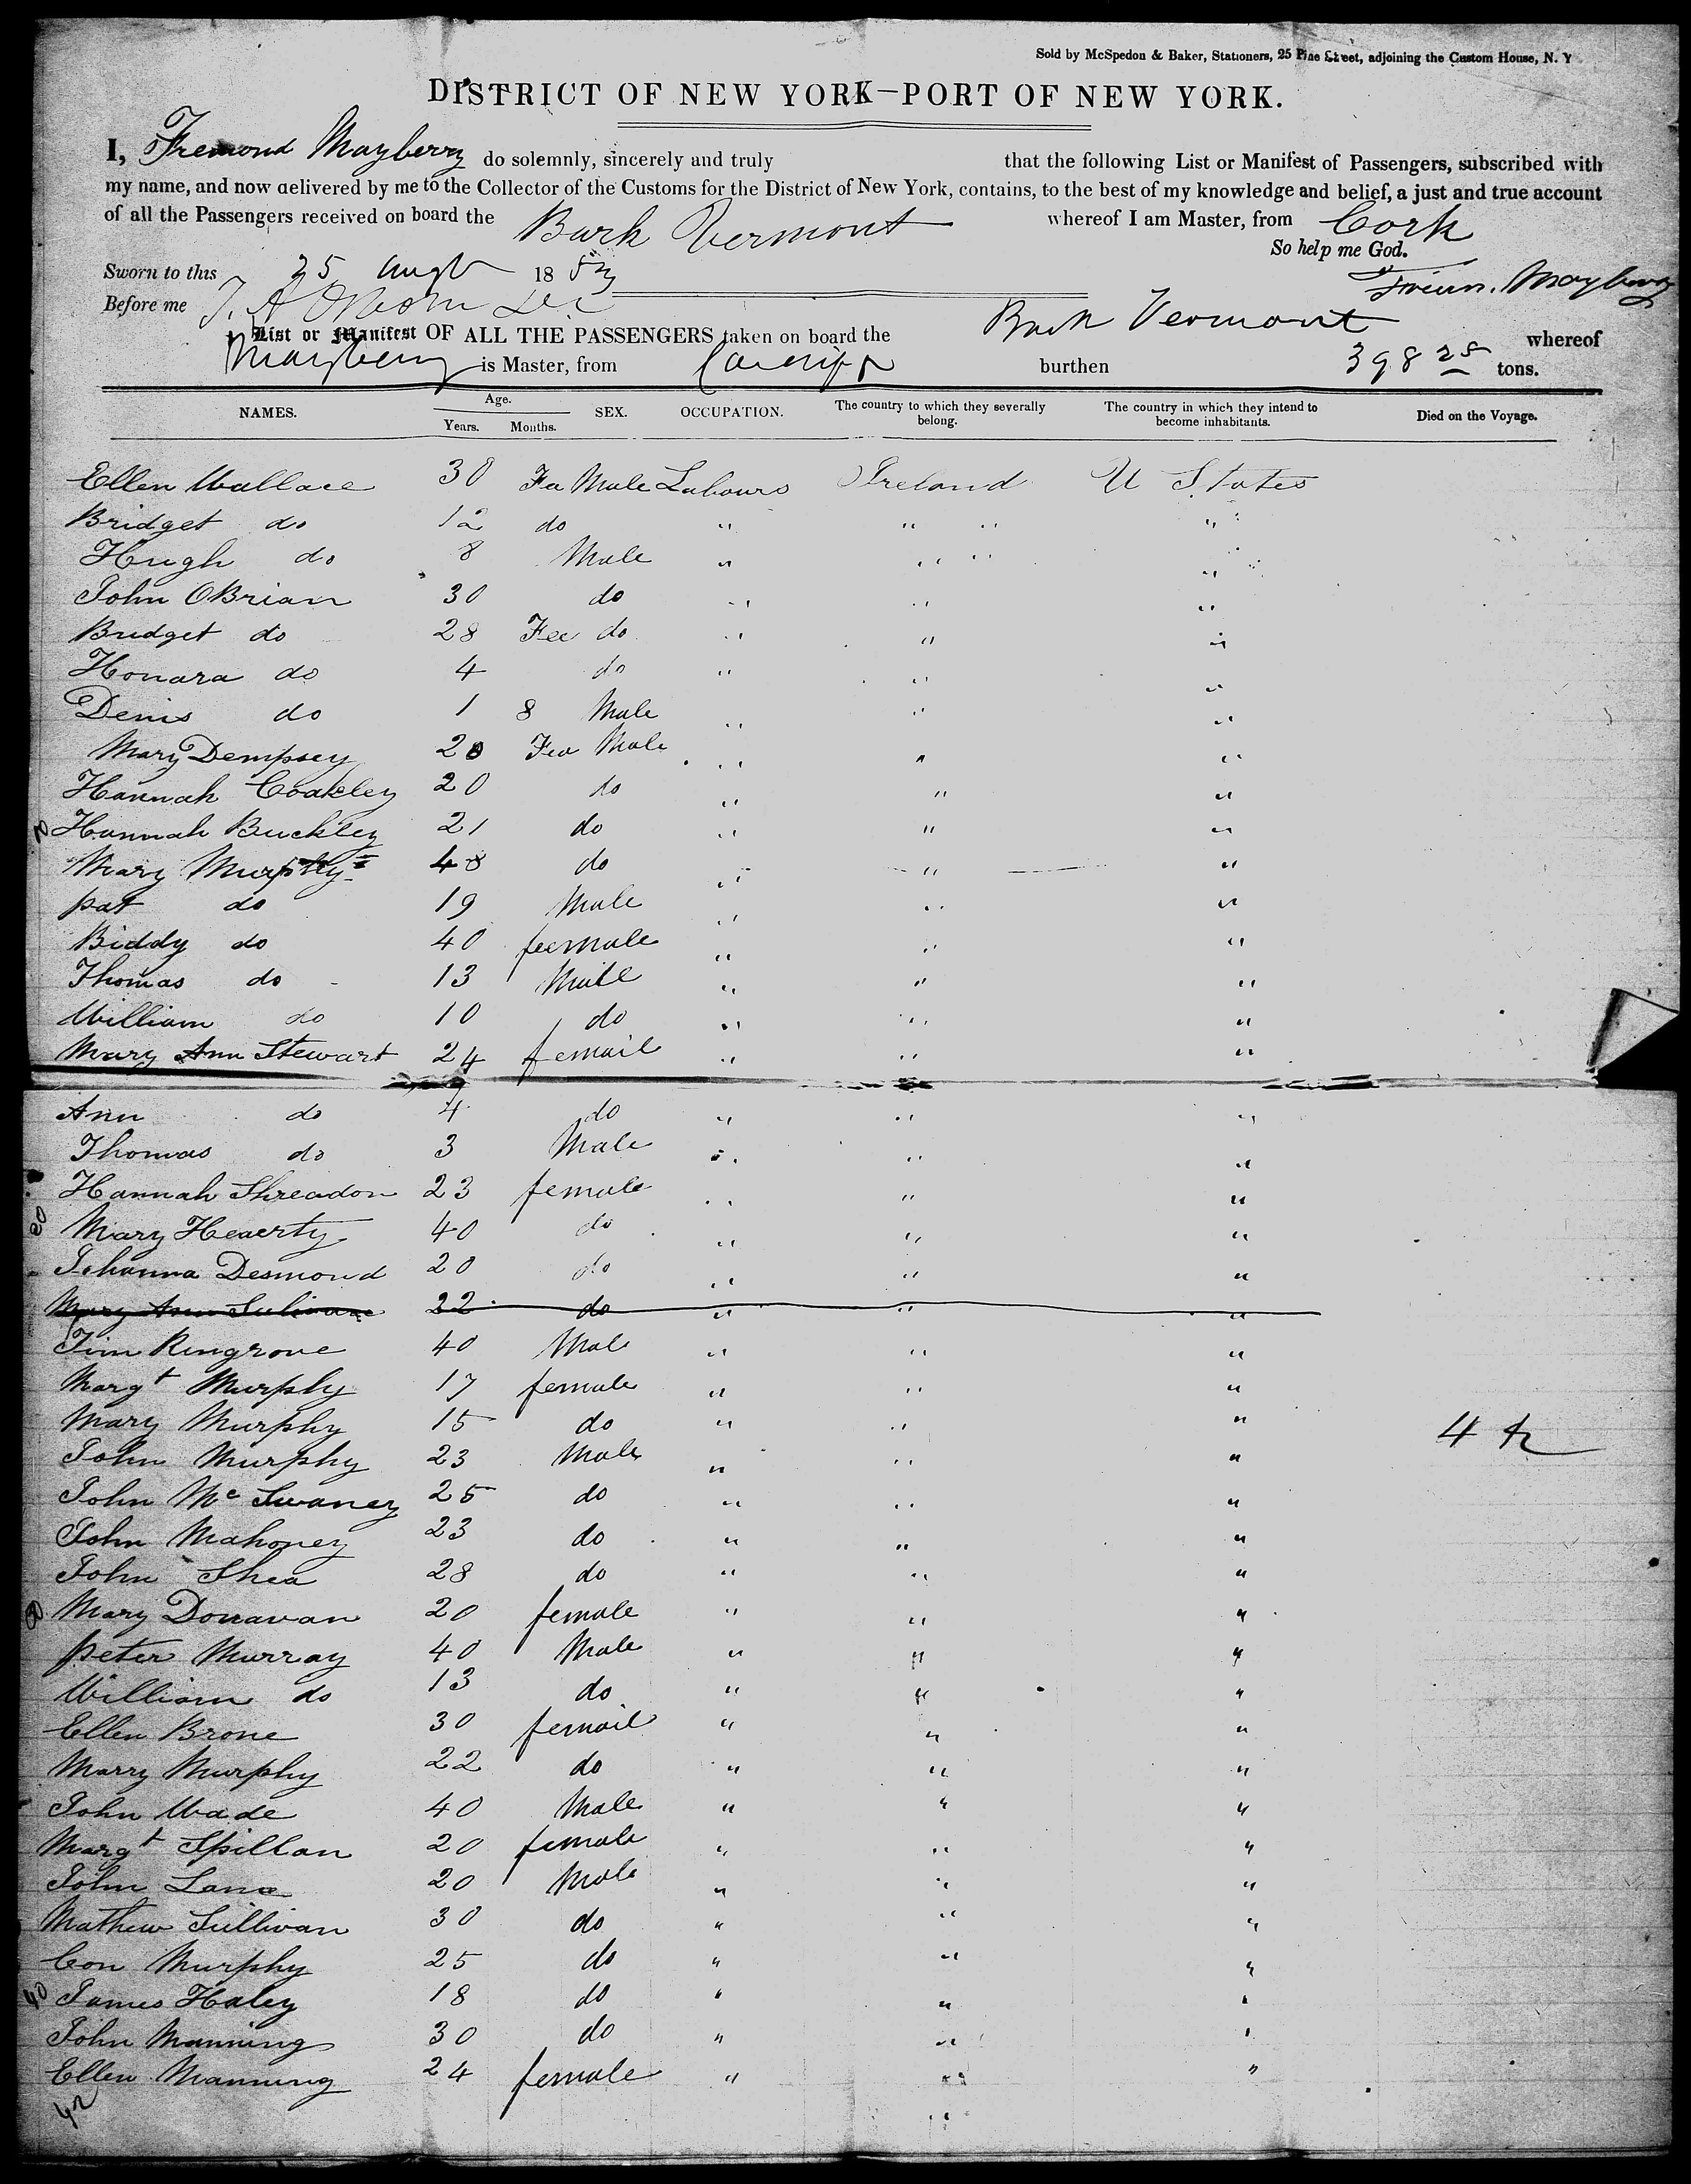 Sold by McSpedon & Baker, Stationers, 25 Pine Street, adjoining the Custom House, N. Y
DISTRICT OF NEW YORK—PORT OF NEW YORK.
I, Fremond Mayberry do solemnly, sincerely and truly that the following List or Manifest of Passengers, subscribed with
my name, and now delivered by me to the Collector of the Customs for the District of New York, contains, to the best of my knowledge and belief, a just and true account
of all the Passengers received on board the Bark Vermont whereof I am Master, from Cork
So help me God.
Sworn to this 25 Augt 18 Mayberry
Before me
List or Manifest OF ALL THE PASSENGERS taken on board the Bark Vermont whereof
Mayberry is Master, from Cardiff burthen 398 28 tons.
NAMES. Age. Years. Months. SEX. OCCUPATION. The country to which they severally belong. The country in which they intend to become inhabitants. Died on the Voyage.
Ellen Wallace 30 Fa Male Labours Ireland U States
Bridget do 12 do " " " "
Hugh do 8 Male " " " "
John OBrian 30 do " " "
Bridget do 28 Fee do " " "
Honara do 4 do " " "
Denis do 1 8 Male " " "
Mary Dempsey 20 Fea Male " " "
Hannah Coakley 20 do " " "
Hannah Buckley 21 do " " "
Mary Murphy 48 do " " "
pat do 19 Male " " "
Biddy do 40 feemale " " "
Thomas do 13 Maile " " "
William do 10 do " " "
Mary Ann Stewart 24 femail " " "
Ann do 4 do " " "
Thomas do 3 Male " " "
Hannah Shreadon 23 female " " "
20 Mary Heaerty 40 do " " "
Johanna Desmond 20 do " " "
Mary Ann Sulivan 22 do " " "
Tim Ringrove 40 Male " " "
Margt Murphy 17 female " " "
Mary Murphy 15 do " " " 4
John Murphy 23 Male " " "
John Mc Swaney 25 do " " "
John Mahoney 23 do " " "
John Shea 28 do " " "
Mary Donavan 20 female " " "
peter Murray 40 Male " " "
William do 13 do " " "
Ellen Brone 30 femail " " "
Marry Murphy 22 do " " "
John Wade 40 Male " " "
Margt Spillan 20 female " " "
John Lane 20 Male " " "
Mathew Sullivan 30 do " " "
Con Murphy 25 do " " "
40 James Haley 18 do " " "
John Manning 30 do " " "
Ellen Manning 24 female " " "
42 "